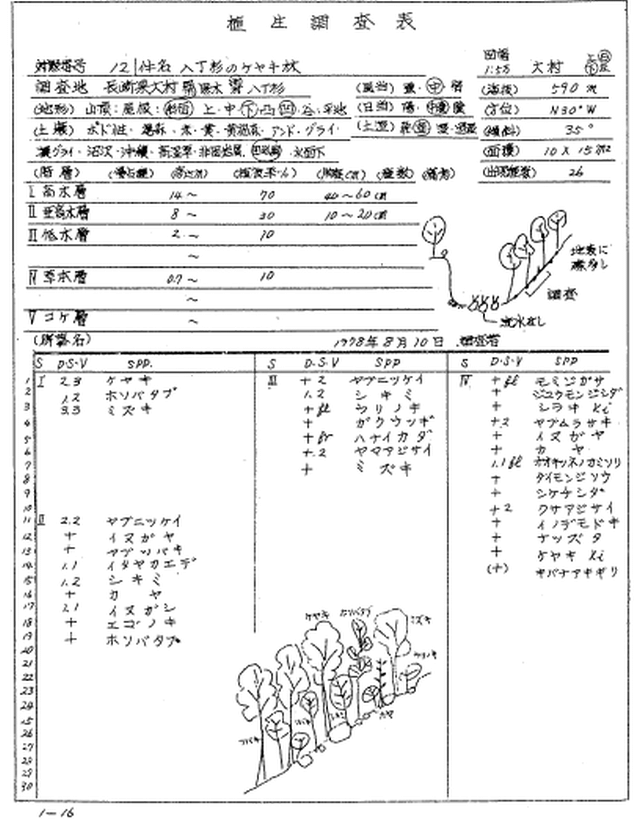 植生調査表
対照番号 121 件名 八丁杉のケヤキ林
図幅 1:5万 大村 上 下
調査地 長崎県大村 八丁杉
(風当) 強 中 弱
(海抜) 590 m
(地形) 山頂:尾根:斜面 上・中・下・凸・凹・谷・平地
(日当) 陽・中陰・陰
(方位) N30°W
(土壌) ポド性・褐森・赤・黄・黄褐森・アンド・グライ・
(土湿)
(傾斜) 35°
擬グライ・沼沢・沖積・高湿草・非固岩屑・ ・水面下
(面積) 10 X 15 m²
(出現種数) 26
(階層) (優占種) (高さm) (植被率%) (胸径cm) (種数) (備考)
I 高木層 14~ 70 40~60 cm
II 亜高木層 8~ 30 10~20 cm
III 低木層 2~ 10
~
IV 草本層 0.7~ 10
~
V コケ層 ~
地表に
調査
流水なし
(群落名) 1978年8月10日 調査者
S D・S・V SPP. S D.S.V SPP S D・S・V SPP
1 I 2.3 ケヤキ III +2 ヤブニッケイ IV + fl モミジガサ
2 1.2 ホソバタブ 1.2 シキミ + ジュウモンジシダ
3 3.3 ミズキ + fl ウリノキ + シラキ Ki
4 + ガクウツギ +.2 ヤブムラサキ
5 + fr ハナイカダ + イヌガヤ
6 +.2 ヤマアジサイ + カヤ
7 + ミズキ 1.1 fl オオキツネノカミソリ
8 + ダイモンジソウ
9 + シケチシダ
10 +2 クサアジサイ
11 II 2.2 ヤブニッケイ + イノデモドキ
12 + イヌガヤ + ナツヅタ
13 + ヤブツバキ + ケヤキ Ki
14 1.1 イタヤカエデ (+) キバナアキギリ
15 1.2 シキミ
16 + カヤ
17 1.1 イヌガシ
18 + エゴノキ
19 + ホソバタブ
20
21
22
23
24
25
26
27
28
29
30
ケヤキ ホソバタブ ミズキ
ウリノキ
シキミ カヤ
ツバキ
1-16